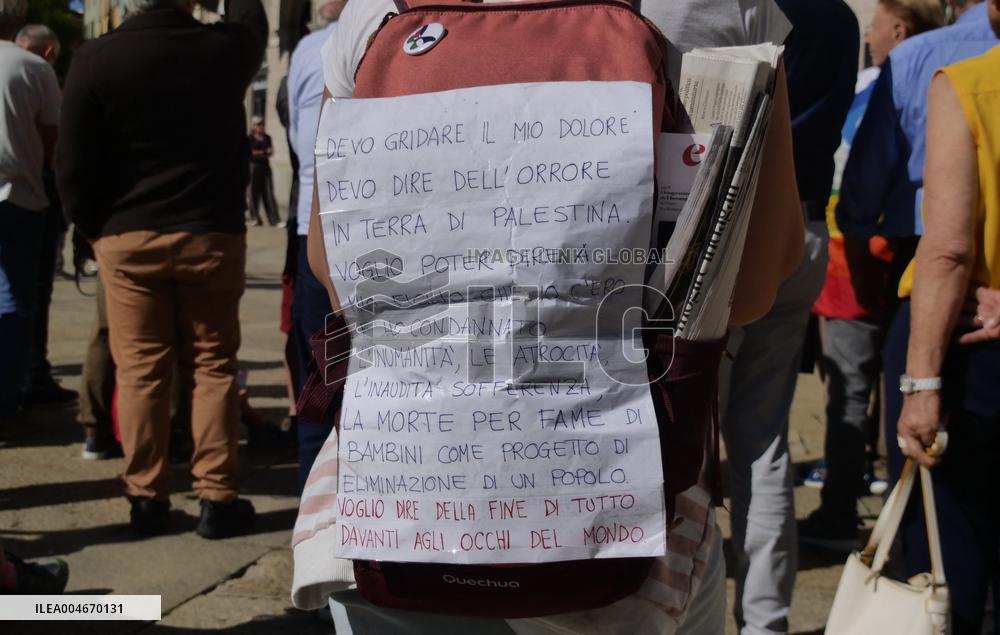 DEVO GRIDARE IL MIO DOLORE
DEVO DIRE DELL'ORRORE
IN TERRA DI PALESTINA.
VOGLIO POTER DIRE A
MIO FIGLIO CHE IO C'ERO
CONDANNATO
L'INUMANITA', LE ATROCITA',
L'INAUDITA SOFFERENZA,
LA MORTE PER FAME DI
BAMBINI COME PROGETTO DI
ELIMINAZIONE DI UN POPOLO.
VOGLIO DIRE DELLA FINE DI TUTTO
DAVANTI AGLI OCCHI DEL MONDO.
Quechua
e
IMAGENNA GLOBAL
ILG
ILEA004670131